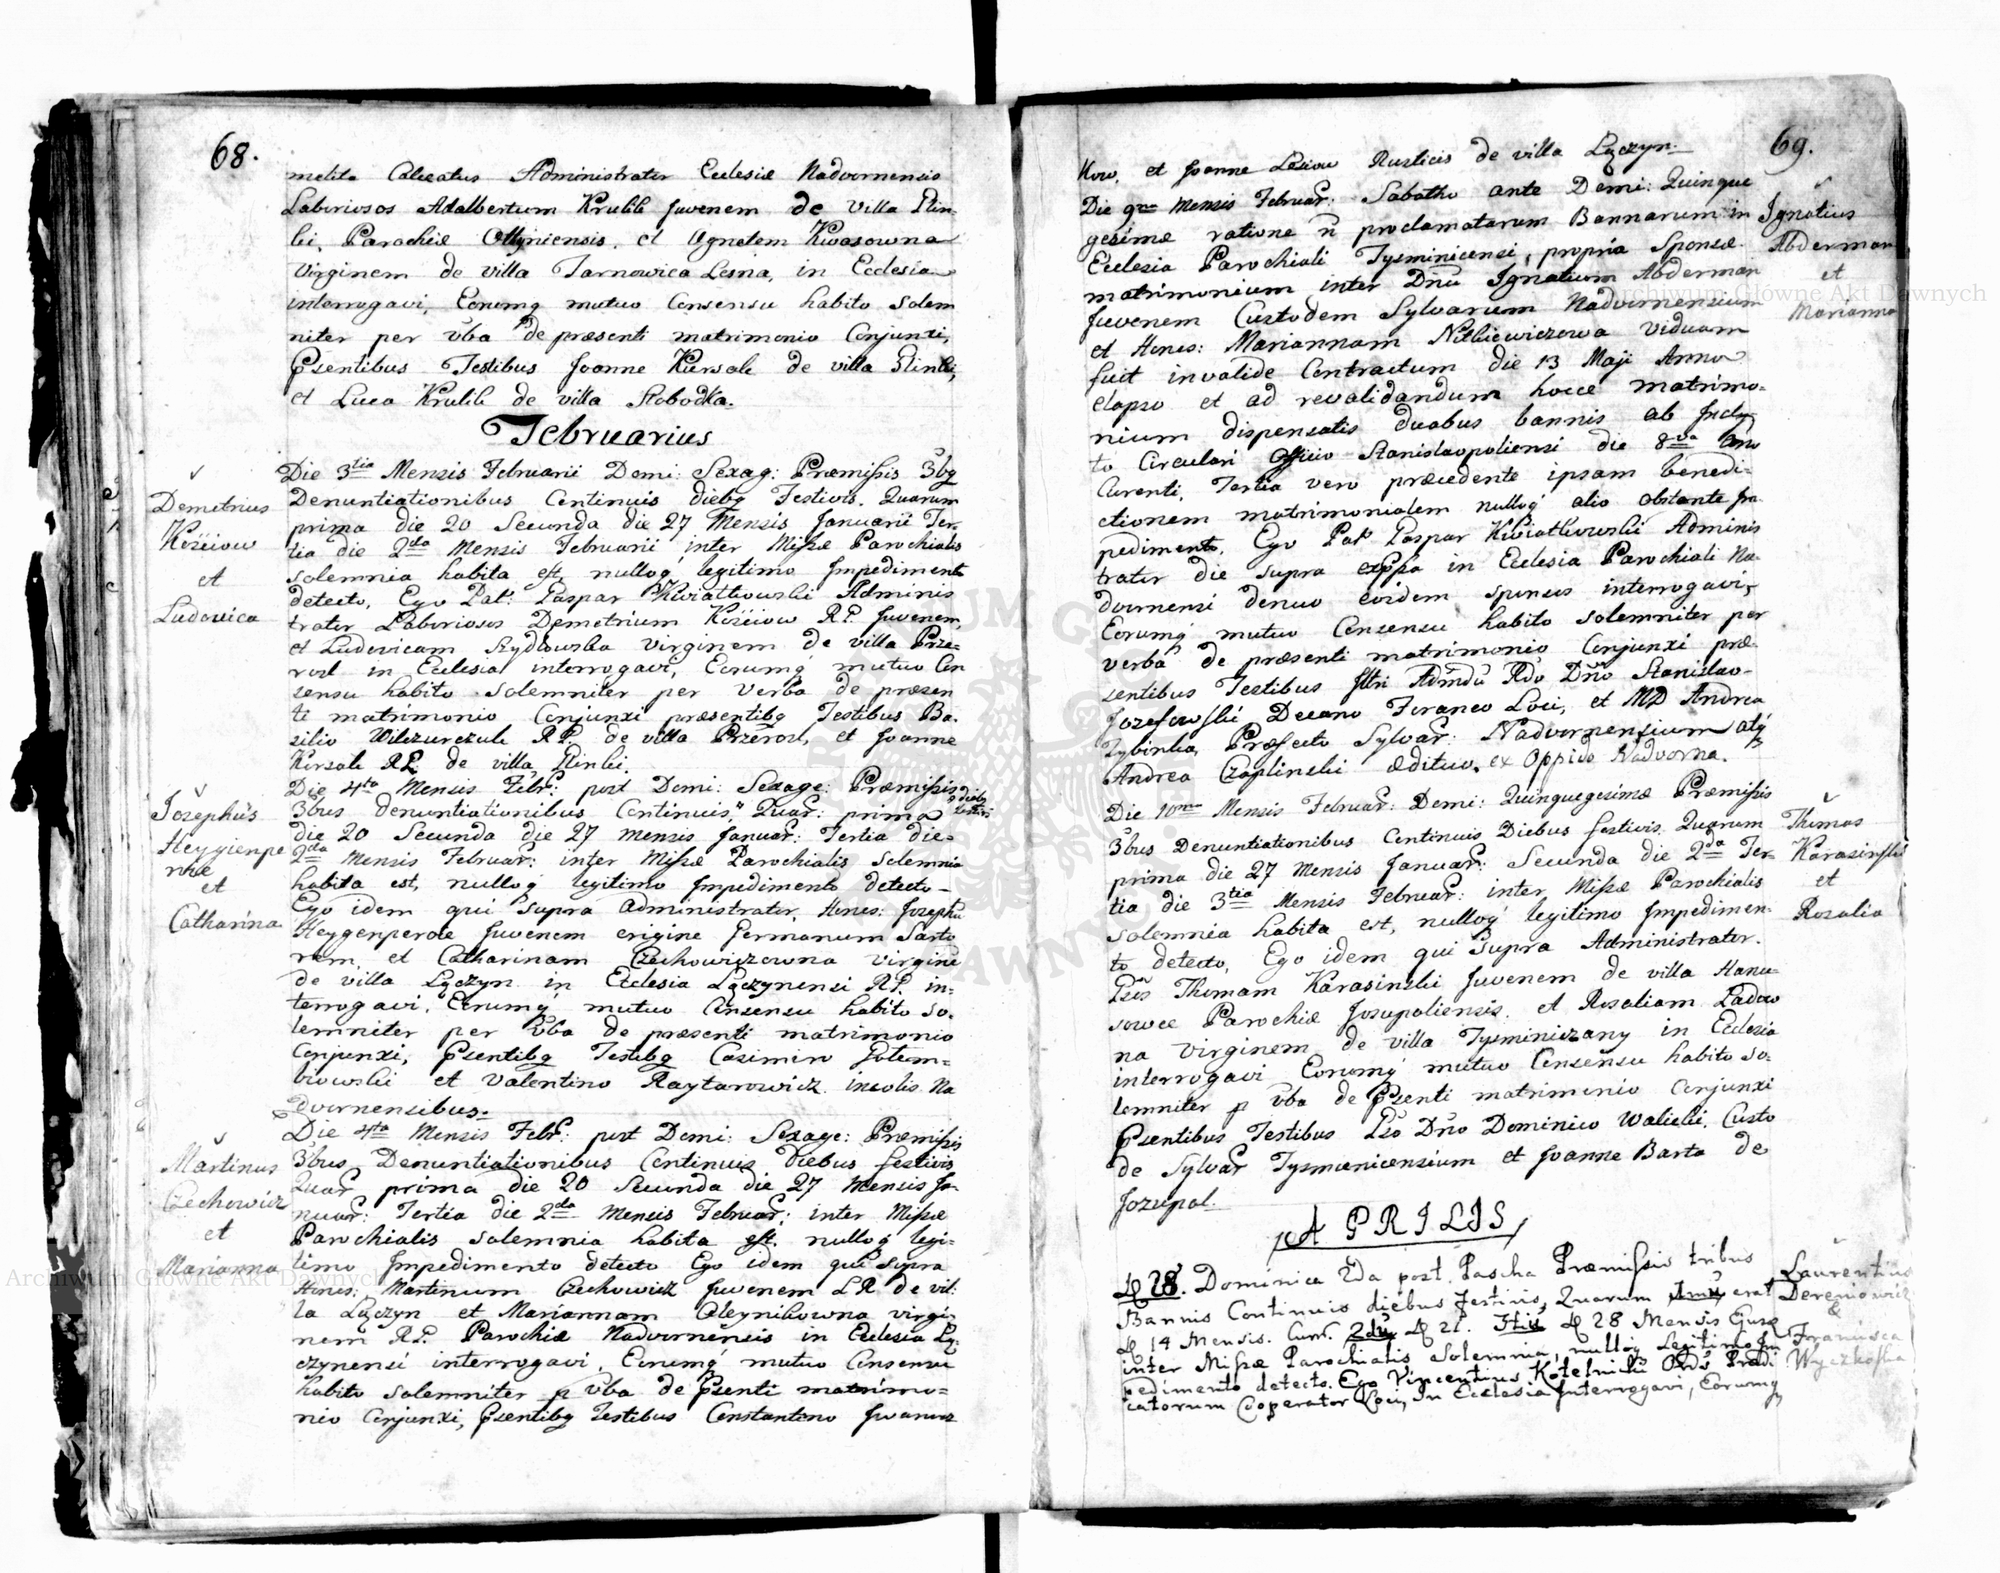 68.
melita Calceatus Administrator Ecclesiæ Nadvornensis
Laboriosos Adalbertum Krulik Juvenem de Villa Hlin-
ki, Parochiæ Ottyniensis, et Agnetem Kwasowna
Virginem de villa Tarnowica Lesna, in Ecclesia
interrogavi, Eorumq mutuo Consensu habito Solem
niter per vba de præsenti matrimonio Conjunxi,
Psentibus Testibus Joanne Kursak de villa Hlinki,
et Luca Krulik de villa Slobodka.
Februarius
Demetrius
Kościow
et
Ludovica
Die 3tia Mensis Februarii Domi: Sexag: Præmissis 3bq
Denuntiationibus Continuis diebq Festivis. Quarum
prima die 20 Secunda die 27 Mensis Januarii Ter-
tia die 2da Mensis Februarii inter Missæ Parochialis
solemnia habita est, nulloq legitimo Impedimento
detecto, Ego Pat: Gaspar Kwiatkowski Adminis
trator Laboriosos Demetrium Kościow R.P. Juvenem,
et Ludovicam Szydłowska Virginem de villa Prze-
rosl in Ecclesia interrogavi, Eorumq mutuo Con
sensu habito Solemniter per Verba de præsen
ti matrimonio Conjunxi præsentibq Testibus Ba-
silio Wilczurczak R.P. de villa Przerosl, et Joanne
Kirsak R.P. de villa Hlinki.
Josephus
Heygienpe
rolæ
et
Catharina
Die 4ta Mensis Febr: post Domi: Sexage: Præmissis
3bus denuntiationibus Continuis diebq festivi, Quar: prima
die 20 Secunda die 27 mensis Januar: Tertia die
2da Mensis Februar: inter Missæ Parochialis Solemnia
habita est, nulloq legitimo Impedimento detecto-
Ego idem qui supra Administrator, Hones: Josephu
Heygenperole Juvenem origine Germanum Sarto
rem, et Catharinam Czechowiczowna Virginē
de villa Lączyn in Ecclesia Lączynensi R.P. in-
terrogavi. Eorumq mutuo Consensu habito So-
lemniter per vba de præsenti matrimonio
Conjunxi, Psentibq Testibq Casimiro Gołem-
biowski et Valentino Raytarowicz incolis Na
dvornensibus.
Martinus
Czechowicz
et
Marianna
Die 4ta Mensis Febr: post Domi: Sexage: Præmissis
3bus Denuntiationibus Continuis Diebus festivis
Quar prima die 20 Secunda die 27 Mensis Ja-
nuar: Tertia die 2da Mensis Februar: inter Missæ
Parochialis Solemnia habita est. nulloq legi-
timo Impedimento detecto Ego idem qui Supra
Hones: Martinum Czechowicz Juvenem L.R. de vil-
la Lączyn et Mariannam Oleynikowna virgi-
nem R.P. Parochiæ Nadvornensis in Ecclesia Lą-
czynensi interrogavi, Eorumq mutuo Consensu
habito solemniter p vba de Psenti matrimo-
nio Conjunxi, Psentibq Testibus Constantino Jwanisz
69.
kow, et Joanne Lesiow Rusticis de villa Lączyn.
Ignatius
Abderman
et
Marianna
Die 9na Mensis Februar: Sabatho ante Domi: Quinque
gesimæ ratione n proclamatarum Bannarum in
Ecclesia Parochiali Tysminicensi, propria Sponsæ
matrimonium inter Dnū Ignatium Abderman
Juvenem Custodem Sylvarum Nadvornensium
et Hones: Mariannam Nitkiewiczowa Viduam
fuit invalide Contractum die 13 Maji Anno
elapso et ad revalidandum hocce matrimo-
nium dispensatis duabus bannis ab Incly-
to Circulari Officio Stanislaopoliensi die 8va Ano
Curenti, Tertia vero præcedente ipsam benedi-
ctionem matrimonialem nulloq alio obstante Im
pedimento, Ego Pat Gaspar Kwiatkowski Adminis
trator die supra exppsa in Ecclesia Parochiali Na-
dvornensi denuo eosdem sponsos interrogavi,
Eorumq mutuo Consensu habito Solemniter per
verba de præsenti matrimonio Conjunxi præ-
sentibus Testibus Illri Admdū Rdo Dno Stanislao
Jozefowski Decano Foraneo Loci, et MD Andrea
Zybinka, Præfecto Sylvar: Nadvornensium atq
Andrea Czaplinski ædituo, ex Oppido Nadvorna.
Thomas
Karasinski
et
Rosalia
Die 10ma Mensis Februar: Domi: Quinquegesimæ Præmissis
3bus Denuntiationibus Continuis Diebus festivis Quarum
prima die 27 Mensis Januar: Secunda die 2da Ter-
tia die 3tia Mensis Februar: inter Missæ Parochialis
Solemnia habita est, nulloq legitimo Impedimen-
to detecto, Ego idem qui Supra Administrator.
Thomam Karasinski Juvenem de villa Hanu-
sowce Parochiæ Jozupoliensis, et Rosaliam Ladow
na Virginem de villa Tysminiczany in Ecclesia
interrogavi Eorumq mutuo Consensu habito So-
lemniter p vba de Psenti matrimonio Conjunxi
Psentibus Testibus Dno Dominico Walicki, Custo
de Sylvar Tysmænicensium et Joanne Barta de
Jozupol.
APRILIS
Laurentius
Derenowicz
&
Francisca
Wyczkoska
D 28. Dominica 2da post Pascha Præmissis tribus
Bannis Continuis diebus Festivis, Quarum 1mū erat
D 14 Mensis. Curr. 2dū D 21. 3tiū D 28 Mensis Ejusd
inter Missæ Parochialis Solemnia, nulloq Legitimo Im
pedimento detecto. Ego Vincentius Kotelnicki Ords Prædi
catorum Cooperator Loci, In Ecclesia Interrogavi, Eorumq
Archiwum Główne Akt Dawnych
Archiwum Główne Akt Dawnych